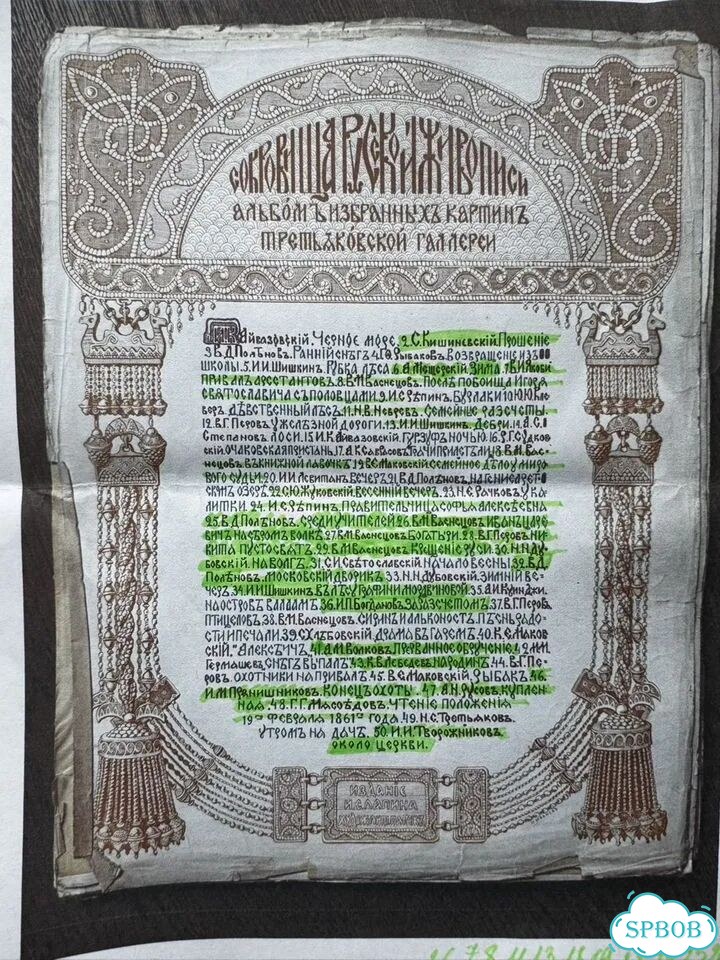 СОКРОВИЩА РУССКОЙ ЖИВОПИСИ
АЛЬБО́МЪ ИЗБРАННЫХЪ КАРТИНЪ
ТРЕТЬЯКО́ВСКОЙ ГАЛЛЕРЕИ
Айвазовскій. Черное море. 2. С. Кишиневскій. Прошеніе
3. В. Д. Полѣнов. Ранній снѣгъ 4. Рыбаков. Возвращеніе изъ
школы. 5. И. И. Шишкин. Рубка лѣса 6. А. Мещерскій. Зима. 7. В. И. Якоби
Привалъ арестантовъ. 8. В. М. Васнецов. Послѣ побоища Игоря
Святославича съ половцами. 9. И. Е. Рѣпин. Бурлаки 10. Ю. Ю. Кле
вер. Дѣвственный лѣсъ. 11. Н. В. Невревъ. Семейные разсчеты.
12. В. Г. Перов. У желѣзной дороги. 13. И. И. Шишкин. Дебри. 14. А. С.
Степанов. Лоси. 15. И. К. Айвазовскій. Гурзуфъ ночью. 16. Р. Г. Судков
скій. Очаковская пристань. 17. А. К. Саврасов. Грачи прилетѣли. 18. В. М. Вас-
нецовъ. В книжной лавочкѣ. 19. В. Е. Маковскій. Семейное дѣло у миро
вого судьи. 20. И. И. Левитан. Вечеръ. 21. В. Д. Полѣновъ. На Генисарет-
скомъ озерѣ. 22. С. Ю. Жуковскій. Весенній вечеръ. 23. Н. Е. Рачков. У ка
литки. 24. И. Е. Рѣпин. Правительница Софья Алексѣевна
25. В. Д. Полѣнов. Среди учителей. 26. В. М. Васнецов. Иванъ царе
вичъ на сѣромъ волкѣ. 27. В. М. Васнецов. Богатыри. 28. В. Г. Перовъ. Ни
кита Пустосвятъ. 29. В. М. Васнецов. Крещеніе Руси. 30. Н. Н. Ду-
бовскій. На Волгѣ. 31. С. И. Свѣтославскій. Начало весны. 32. В. Д.
Полѣновъ. Московскій дворикъ. 33. Н. Н. Дубовскій. Зимній ве-
черъ. 34. И. И. Шишкин. Въ лѣсу графини Мордвиновой. 35. А. И. Куинджи.
На островѣ Валаамѣ. 36. И. П. Богданов. За разсчетомъ. 37. В. Г. Перовъ
Птицелов. 38. В. М. Васнецов. Сиринъ и Алконостъ. Пѣснь радо-
сти и печали. 39. С. Хлѣбовскій. Драма въ гаремѣ. 40. К. Е. Маков
скій. "Алексѣичъ". 41. А. М. Волков. Прерванное обрученіе. 42. М. И.
Гермашевъ. Снѣгъ выпалъ. 43. К. В. Лебедевъ. На родинѣ. 44. В. Г. Пе-
ров. Охотники на привалѣ. 45. В. Е. Маковскій. Рыбакъ. 46.
И. М. Прянишников. Конецъ охоты. 47. А. Н. Русов. Куплен-
ная. 48. Г. Г. Мясоѣдов. Чтеніе положенія
19го февраля 1861го года. 49. Н. С. Третьяков.
Утромъ на дачѣ. 50. И. И. Творожников.
Около церкви.
ИЗДАНІЕ
И. С. ЛАПИНА
SPBOB